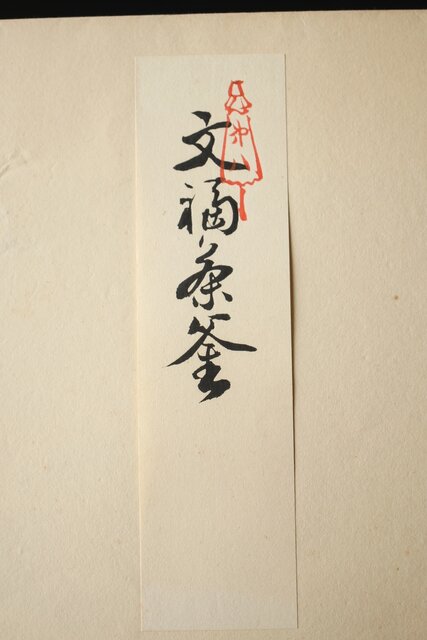 文福茶釜